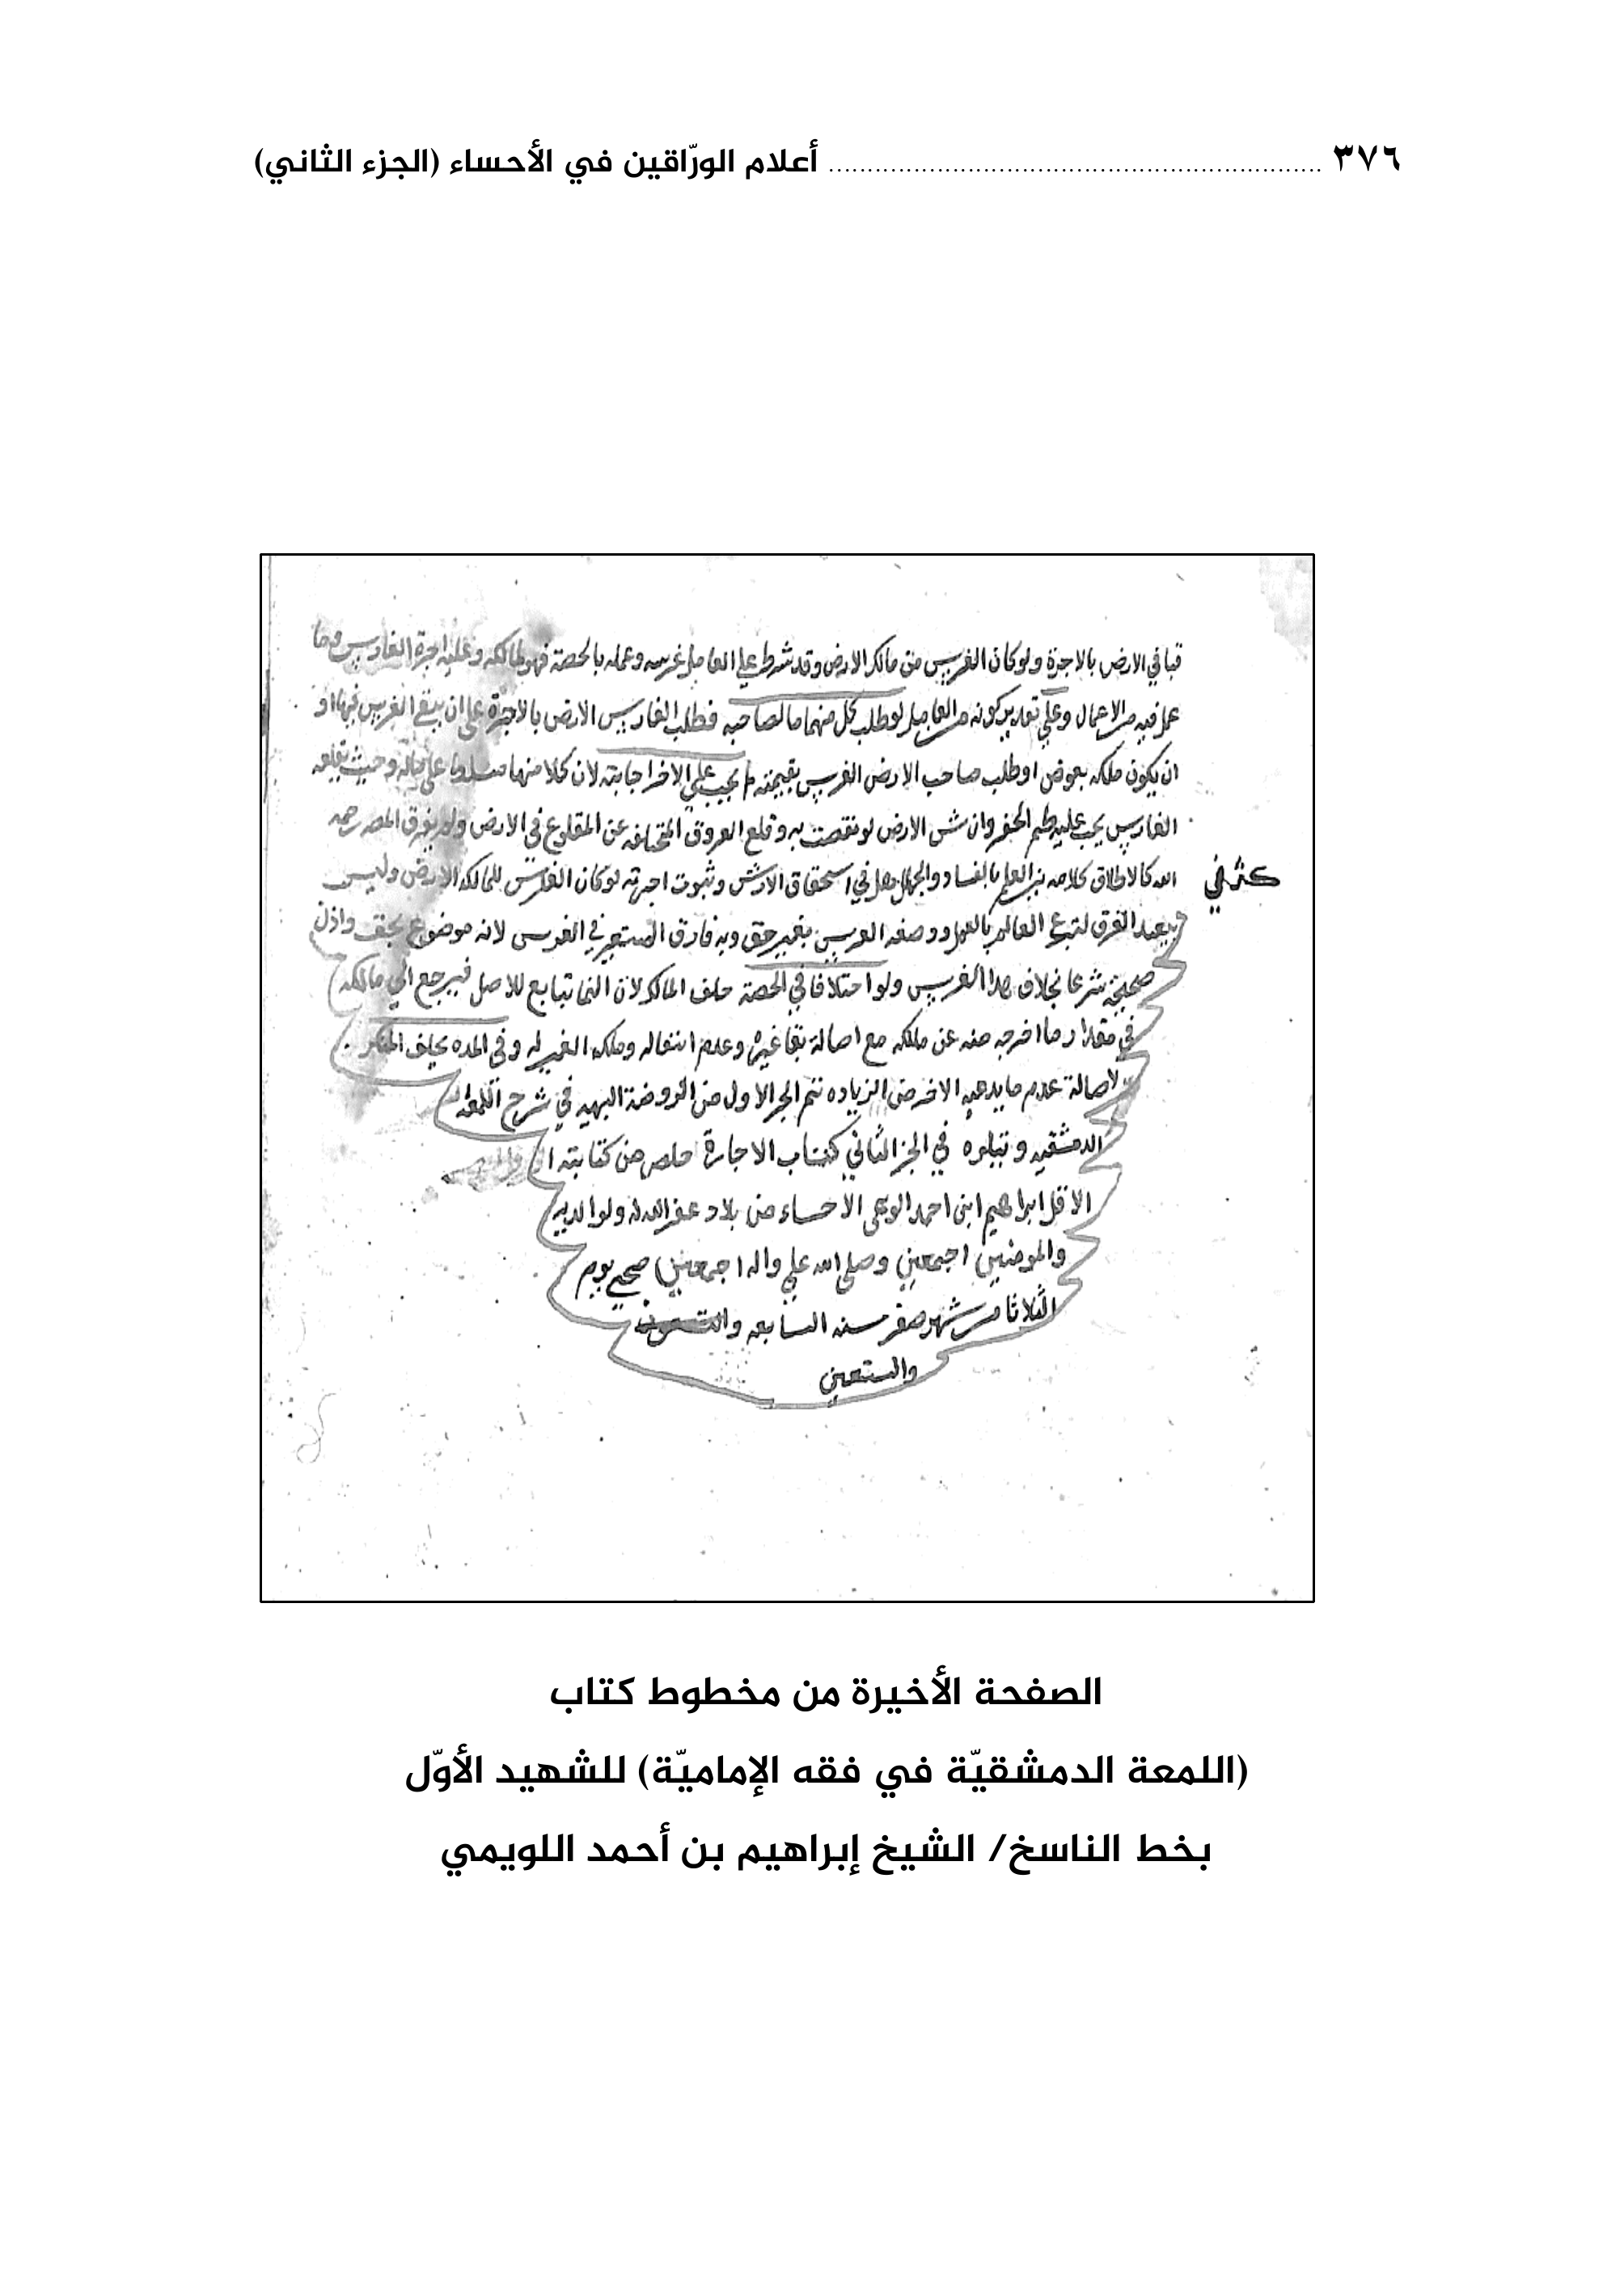 ٣٧٦ ................................................................ أعلام الورّاقين في الأحساء (الجزء الثاني)
في الارض بالاجرة ولو كان الغرس من مالك الارض وقد شرط علي العامل غرسه وعمله بالحصة فهو لمالكه وعليه اجرة الغارس وما
عمل فيه من الاعمال وعلي تقدير كونه من العامل لو طلب كل منهما ما لصاحبه فطلب الغارس الارض بالاجرة على ان يبقي الغرس فيها او
ان يكون ملكه بعوض او طلب صاحب الارض الغرس بقيمته لم يجب علي الاخر اجابته لان كلا منهما مسلط على ماله وحيث يقلعه
الغارس يجب عليه طم الحفر وارش الارض لو نقصت به وقلع العروق المتخلفه عن المقلوع في الارض ولم يفرق المص رحمه
الله كالاطلاق كلامه بين العلم بالفساد والجهل في استحقاق الارش وثبوت اجرته لو كان الغرس لمالك الارض وليس
كثر في
ببعيد الفرق لتبرع العالم بالعمل ووضعه الغرس بغير حق وبه فارق المستعير في الغرس لانه موضوع بحق واذن
صحيحة شرعا بخلاف هذا الغرس ولو اختلافا في الحصة حلف المالك لان النما تبابع للاصل فيرجع الي مالكه
في مقدار ما اخرجه منه عن ملكه مع اصالة بقا غيره وعدم انتقاله وملك الغير له وفي المده يحلف المنكر
لاصالة عدم ما يدعيه الاخر من الزياده تتم الجز الاول من الروضة البهيه في شرح اللمعة
الدمشقيه ويتلوه في الجز الثاني كتاب الاجارة خلص من كتابته
الاقل ابراهيم ابن احمد الويمي الاحساء من بلاد غفر الله له ولوالديه
والمومنين اجمعين وصلى الله علي واله اجمعين ضحي يوم
الثلاثا من شهر صفر سنه السابعه
والستعين
الصفحة الأخيرة من مخطوط كتاب
(اللمعة الدمشقيّة في فقه الإماميّة) للشهيد الأوّل
بخط الناسخ/ الشيخ إبراهيم بن أحمد اللويمي